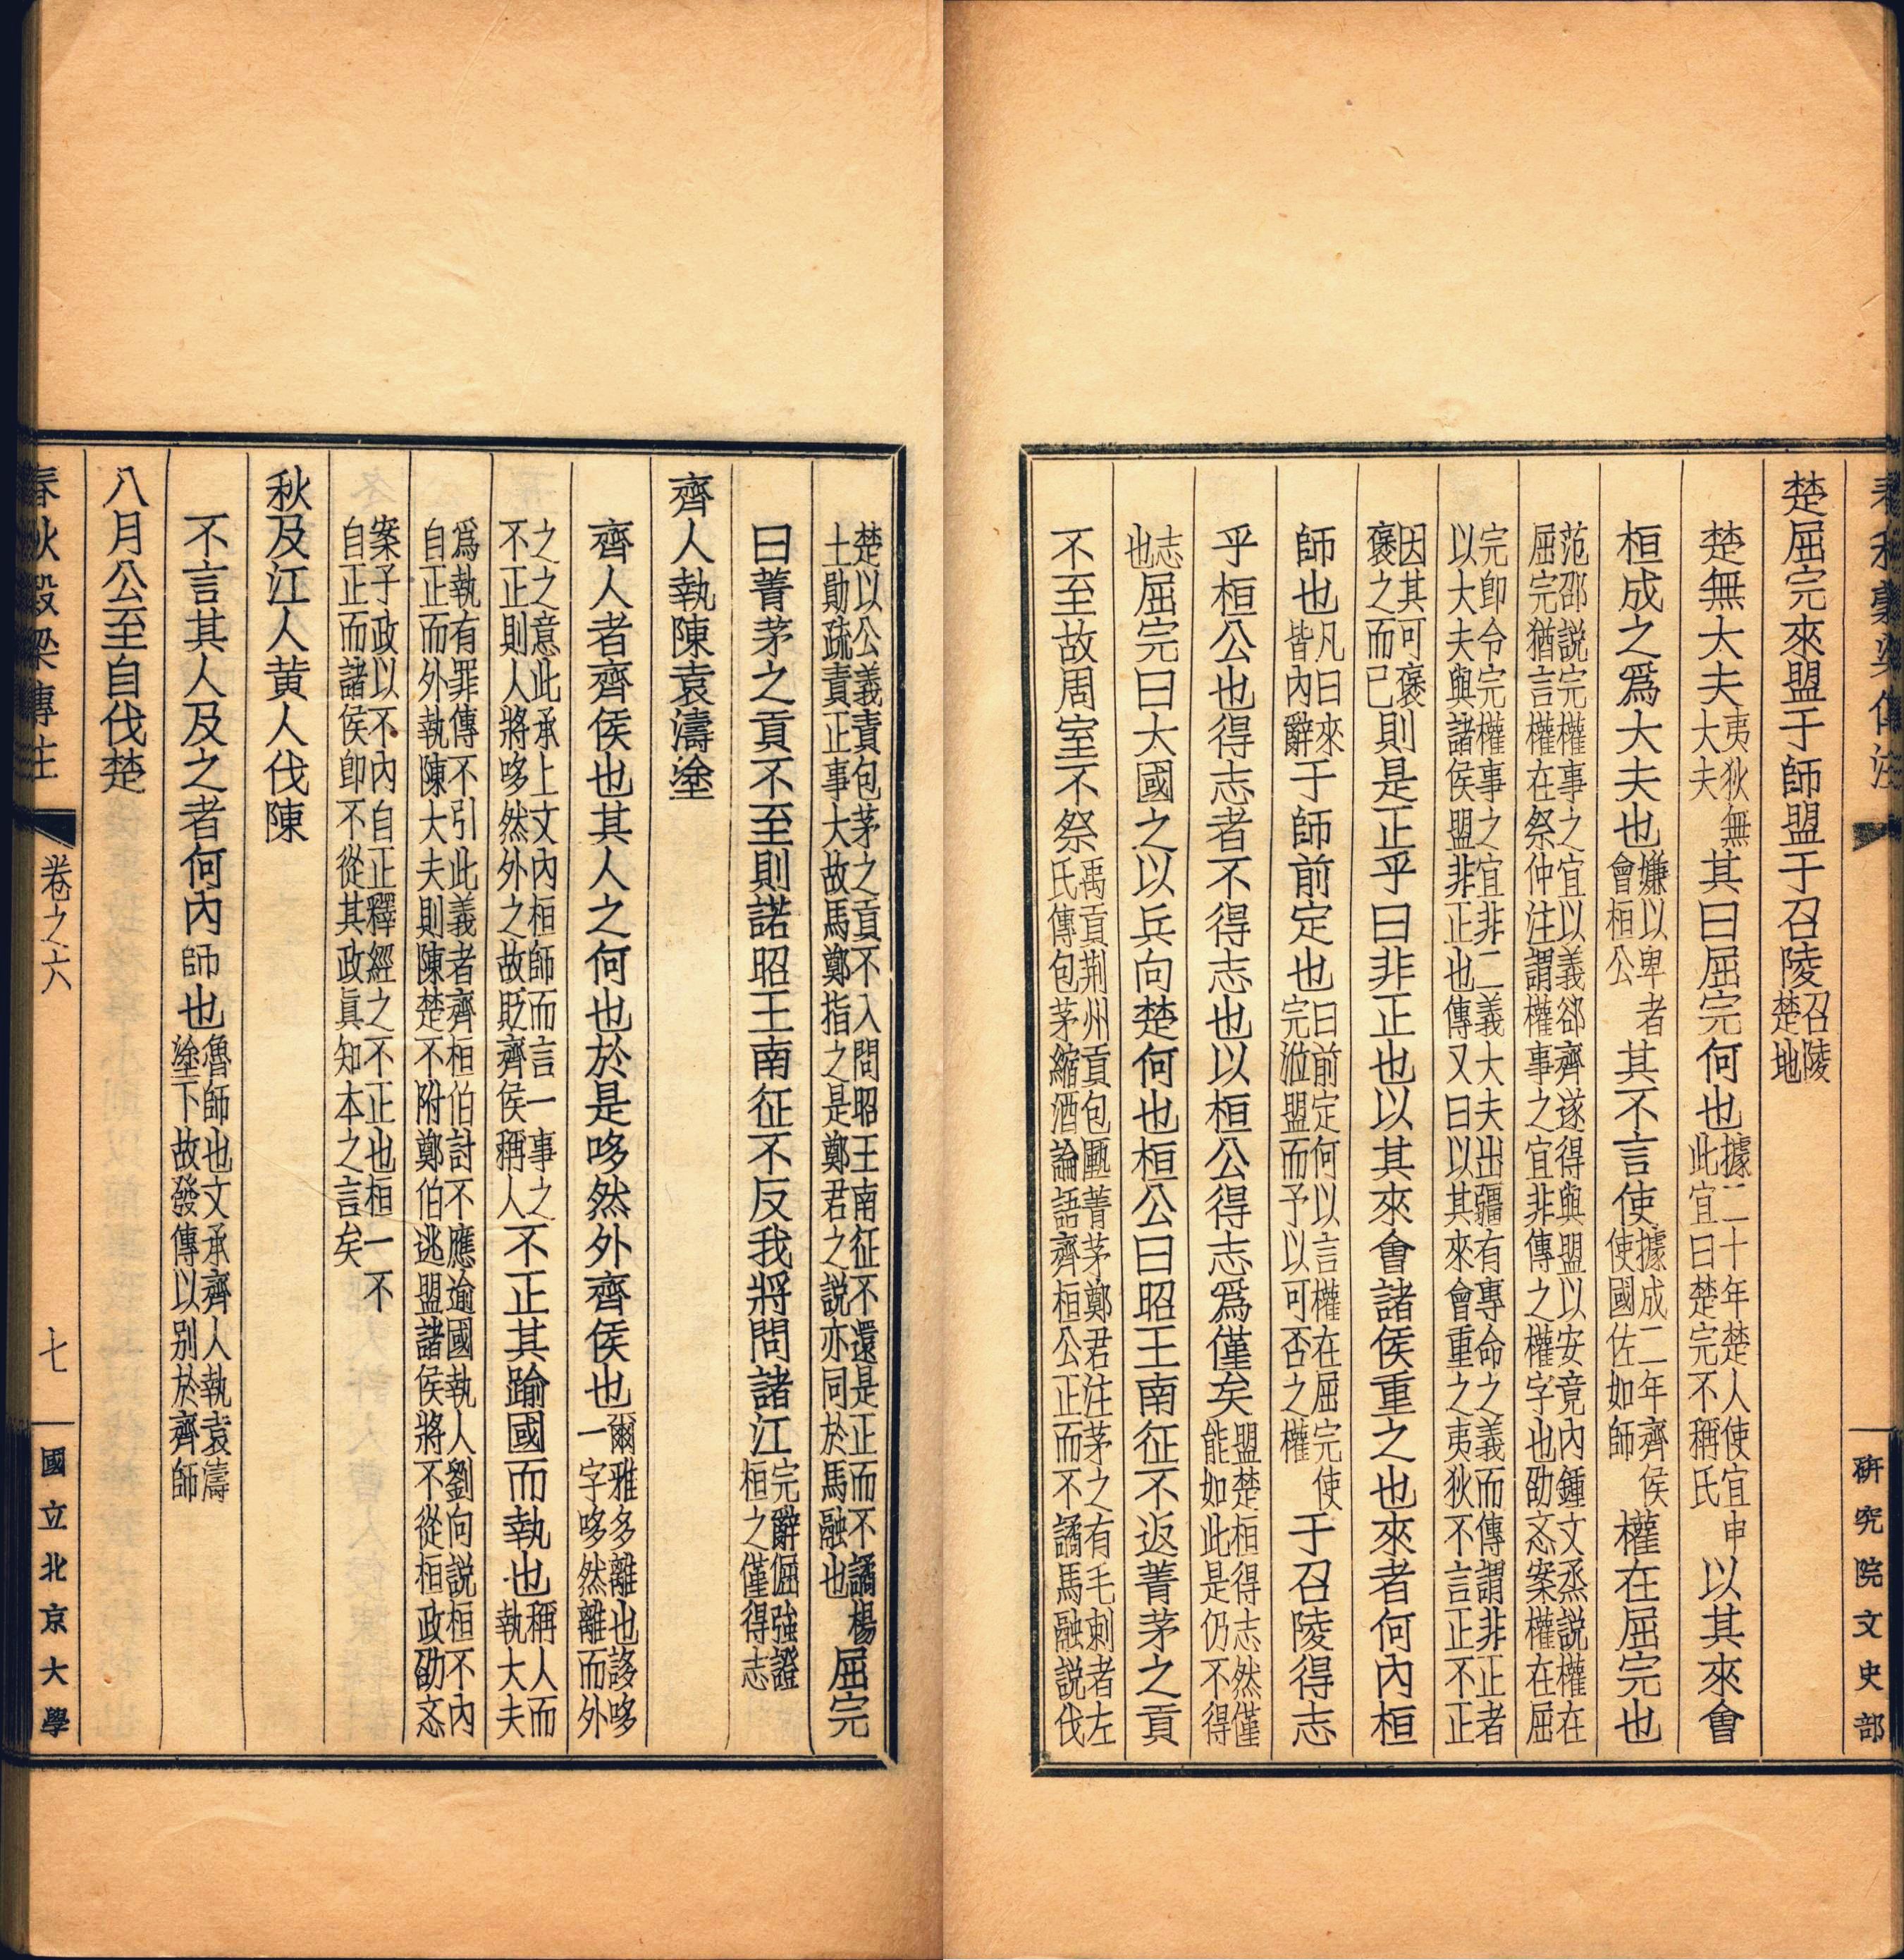 春秋穀梁傳注　研究院文史部
楚屈完來盟于師盟于召陵召陵楚地
楚無大夫夷狄無大夫其曰屈完何也據二十年楚人使宜申此宜曰楚完不稱氏以其來會
桓成之爲大夫也嫌以卑者會桓公其不言使據成二年齊侯使國佐如師權在屈完也
范邵説完權事之宜以義卻齊遂得與盟以安竟內鍾文烝説權在屈完猶言權在祭仲注謂權事之宜非傳之權字也劭忞案權在屈
完卽令完權事之宜非二義大夫出疆有專命之義而傳謂非正者以大夫與諸侯盟非正也傳又曰以其來會重之夷狄不言正不正
因其可褒褒之而已則是正乎曰非正也以其來會諸侯重之也來者何內桓
師也凡曰來皆內辭于師前定也曰前定何以言權在屈完使完涖盟而予以可否之權于召陵得志
乎桓公也得志者不得志也以桓公得志爲僅矣盟楚桓得志然僅能如此是仍不得
志也屈完曰大國之以兵向楚何也桓公曰昭王南征不返菁茅之貢
不至故周室不祭禹貢荆州貢包匭菁茅鄭君注茅之有毛刺者左氏傳包茅縮酒論語齊桓公正而不譎馬融説伐
楚以公義責包茅之貢不入問昭王南征不還是正而不譎楊士勛疏責正事大故馬鄭指之是鄭君之説亦同於馬融也屈完
曰菁茅之貢不至則諾昭王南征不反我將問諸江完辭倔強證桓之僅得志
齊人執陳袁濤塗
齊人者齊侯也其人之何也於是哆然外齊侯也爾雅多離也誃哆一字哆然離而外
之之意此承上文內桓師而言一事之不正則人將哆然外之故貶齊侯稱人不正其踰國而執也稱人而執大夫
爲執有罪傳不引此義者齊桓伯討不應逾國執人劉向説桓不內自正而外執陳大夫則陳楚不附鄭伯逃盟諸侯將不從桓政劭忞
案子政以不內自正釋經之不正也桓一不自正而諸侯卽不從其政眞知本之言矣
秋及江人黄人伐陳
不言其人及之者何內師也魯師也文承齊人執袁濤塗下故發傳以别於齊師
八月公至自伐楚
春秋穀梁傳注　卷之六　七　國立北京大學